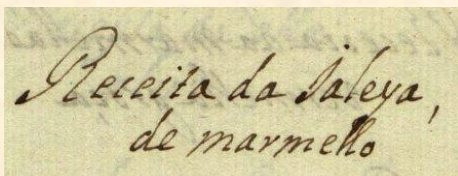 Receita da Jaleya,
de marmello